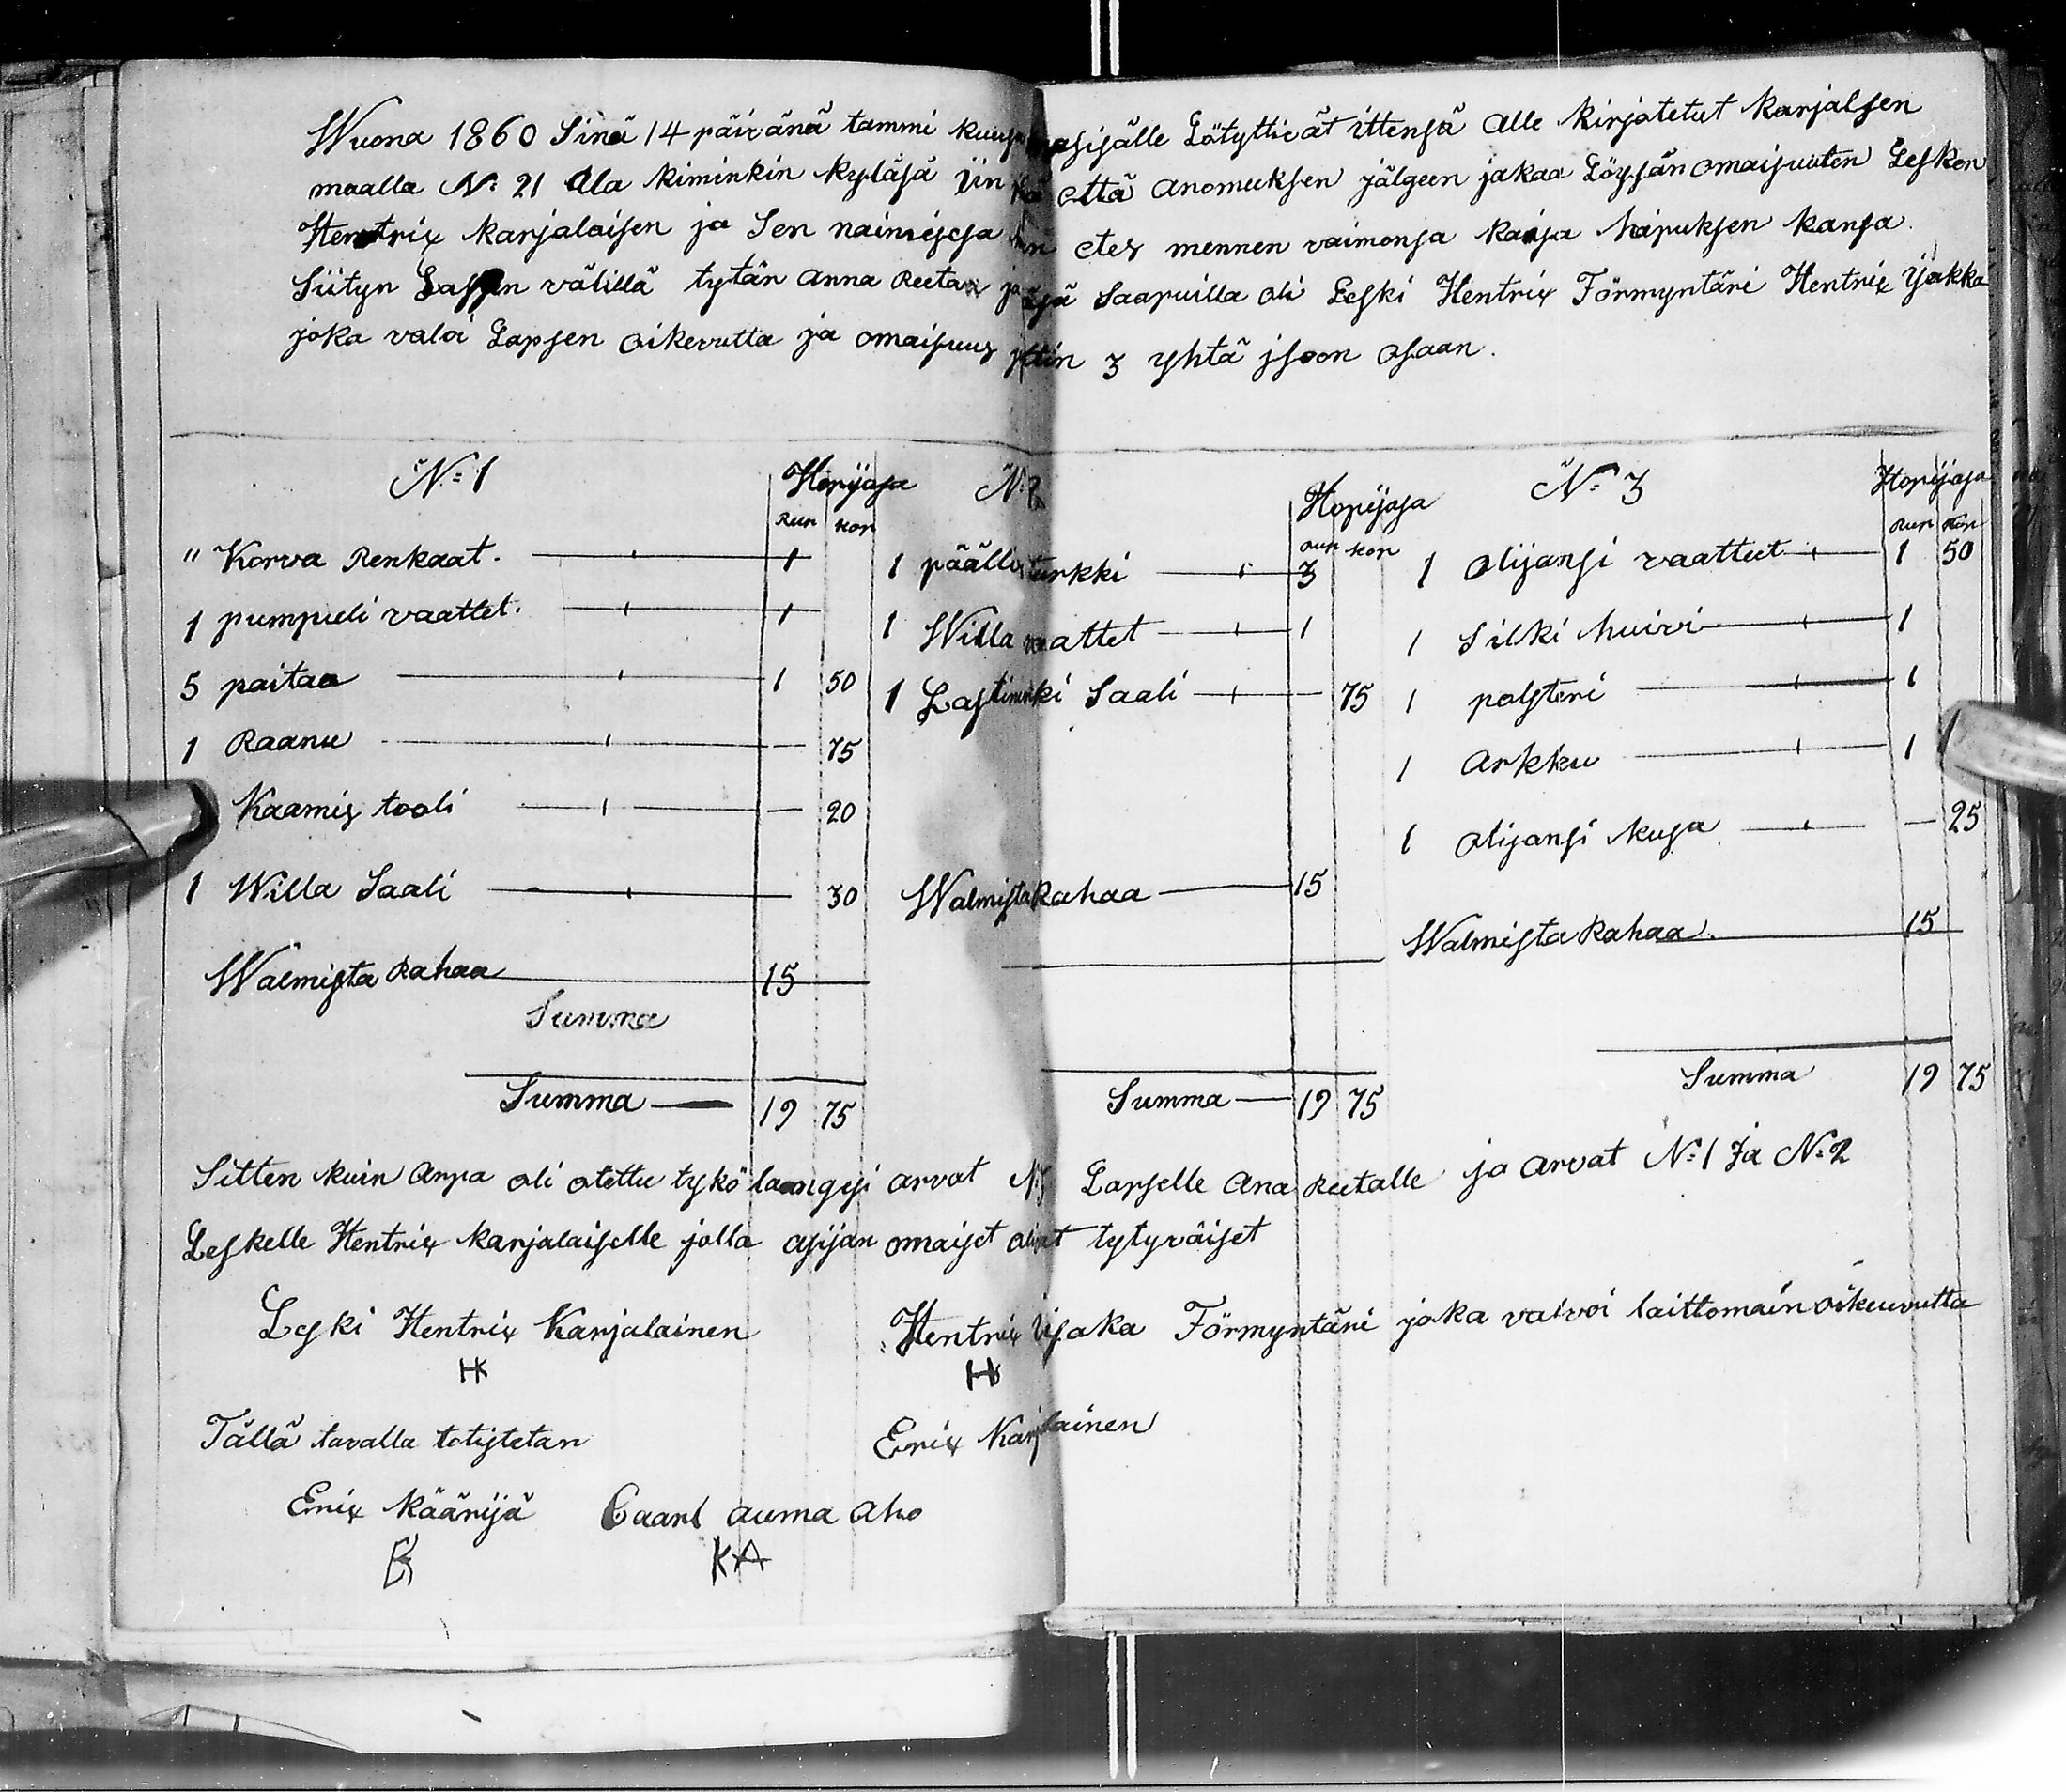 Wuona 1860 Sinä 14 päivänä tammi kuusa sisälle Löytyttivät ittensä alle kirjatetut karjalsen
maalla N: 21 Ala kiminkin kyläsä Iin että anomuksen jälgeen jakaa Löysän omaisuuten Lesken
Hentrix karjalaisen ja Sen naimisesa etes mennen vaimonsa kaisa hapuksen kansa.
Siityn Lapsen välillä tytän anna Reetan ja Saapuilla oli Leski Hentrix Förmyntäri Hentrix ijakka
joka valoi Lapsen oikevutta ja omaisuus 3 yhtä jsoon osaan.
N: 1 Hopijasa N: 2 Hopijasa N: 3 Hopijasa
Rup kop Rup kop Rup kop
" Korva Renkaat. 1
1 pumpuli vaattet. 1
5 paitaa 1 50
1 Raanu 75
Kaamis tooli 20
1 Willa Saali 30
Walmista Rahaa 15
Summa
Summa 19 75
1 päällis turkki 3
1 Willa vaattet 1
1 Lastinki Saali 75
Walmista Rahaa 15
Summa 19 75
1 Olijansi vaatteet 1 50
1 Silki huivi 1
1 polsteri 1
1 Arkku 1
1 Olijansi kusa 25
Walmista Rahaa. 15
Summa 19 75
Sitten kuin Arpa oli otettu tykö laangesi arvat N: 3 Lapselle Ana Reetalle ja arvat N: 1 Ja N: 2
Leskelle Hentrix karjalaiselle jolla asijan omaiset olivat tytyväiset
Leski Hentrix Karjalainen Hentrix ijaka Förmyntäri joka valvoi laittomain oikeuvutta
HK H
Tällä tavalla totistetan Erix Karjlainen
Erix Käärijä Caarl auma aho
KA